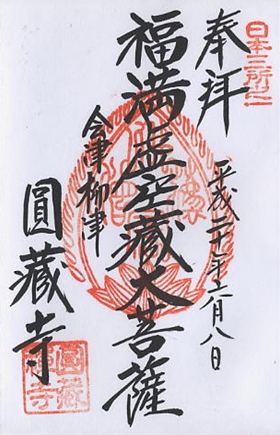 日本三所之一
奉拝
平成二十年十一月八日
福満虚空藏大菩薩
会津柳津
圓藏寺